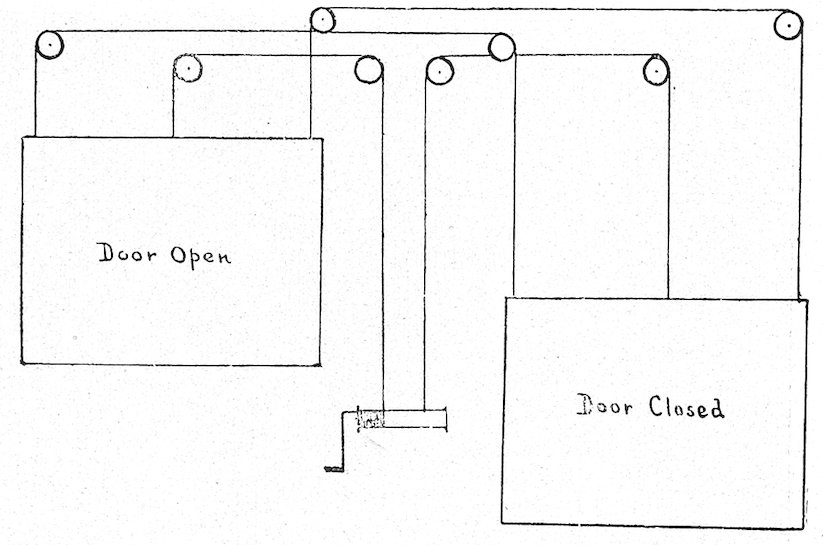 Door Open
Door Closed